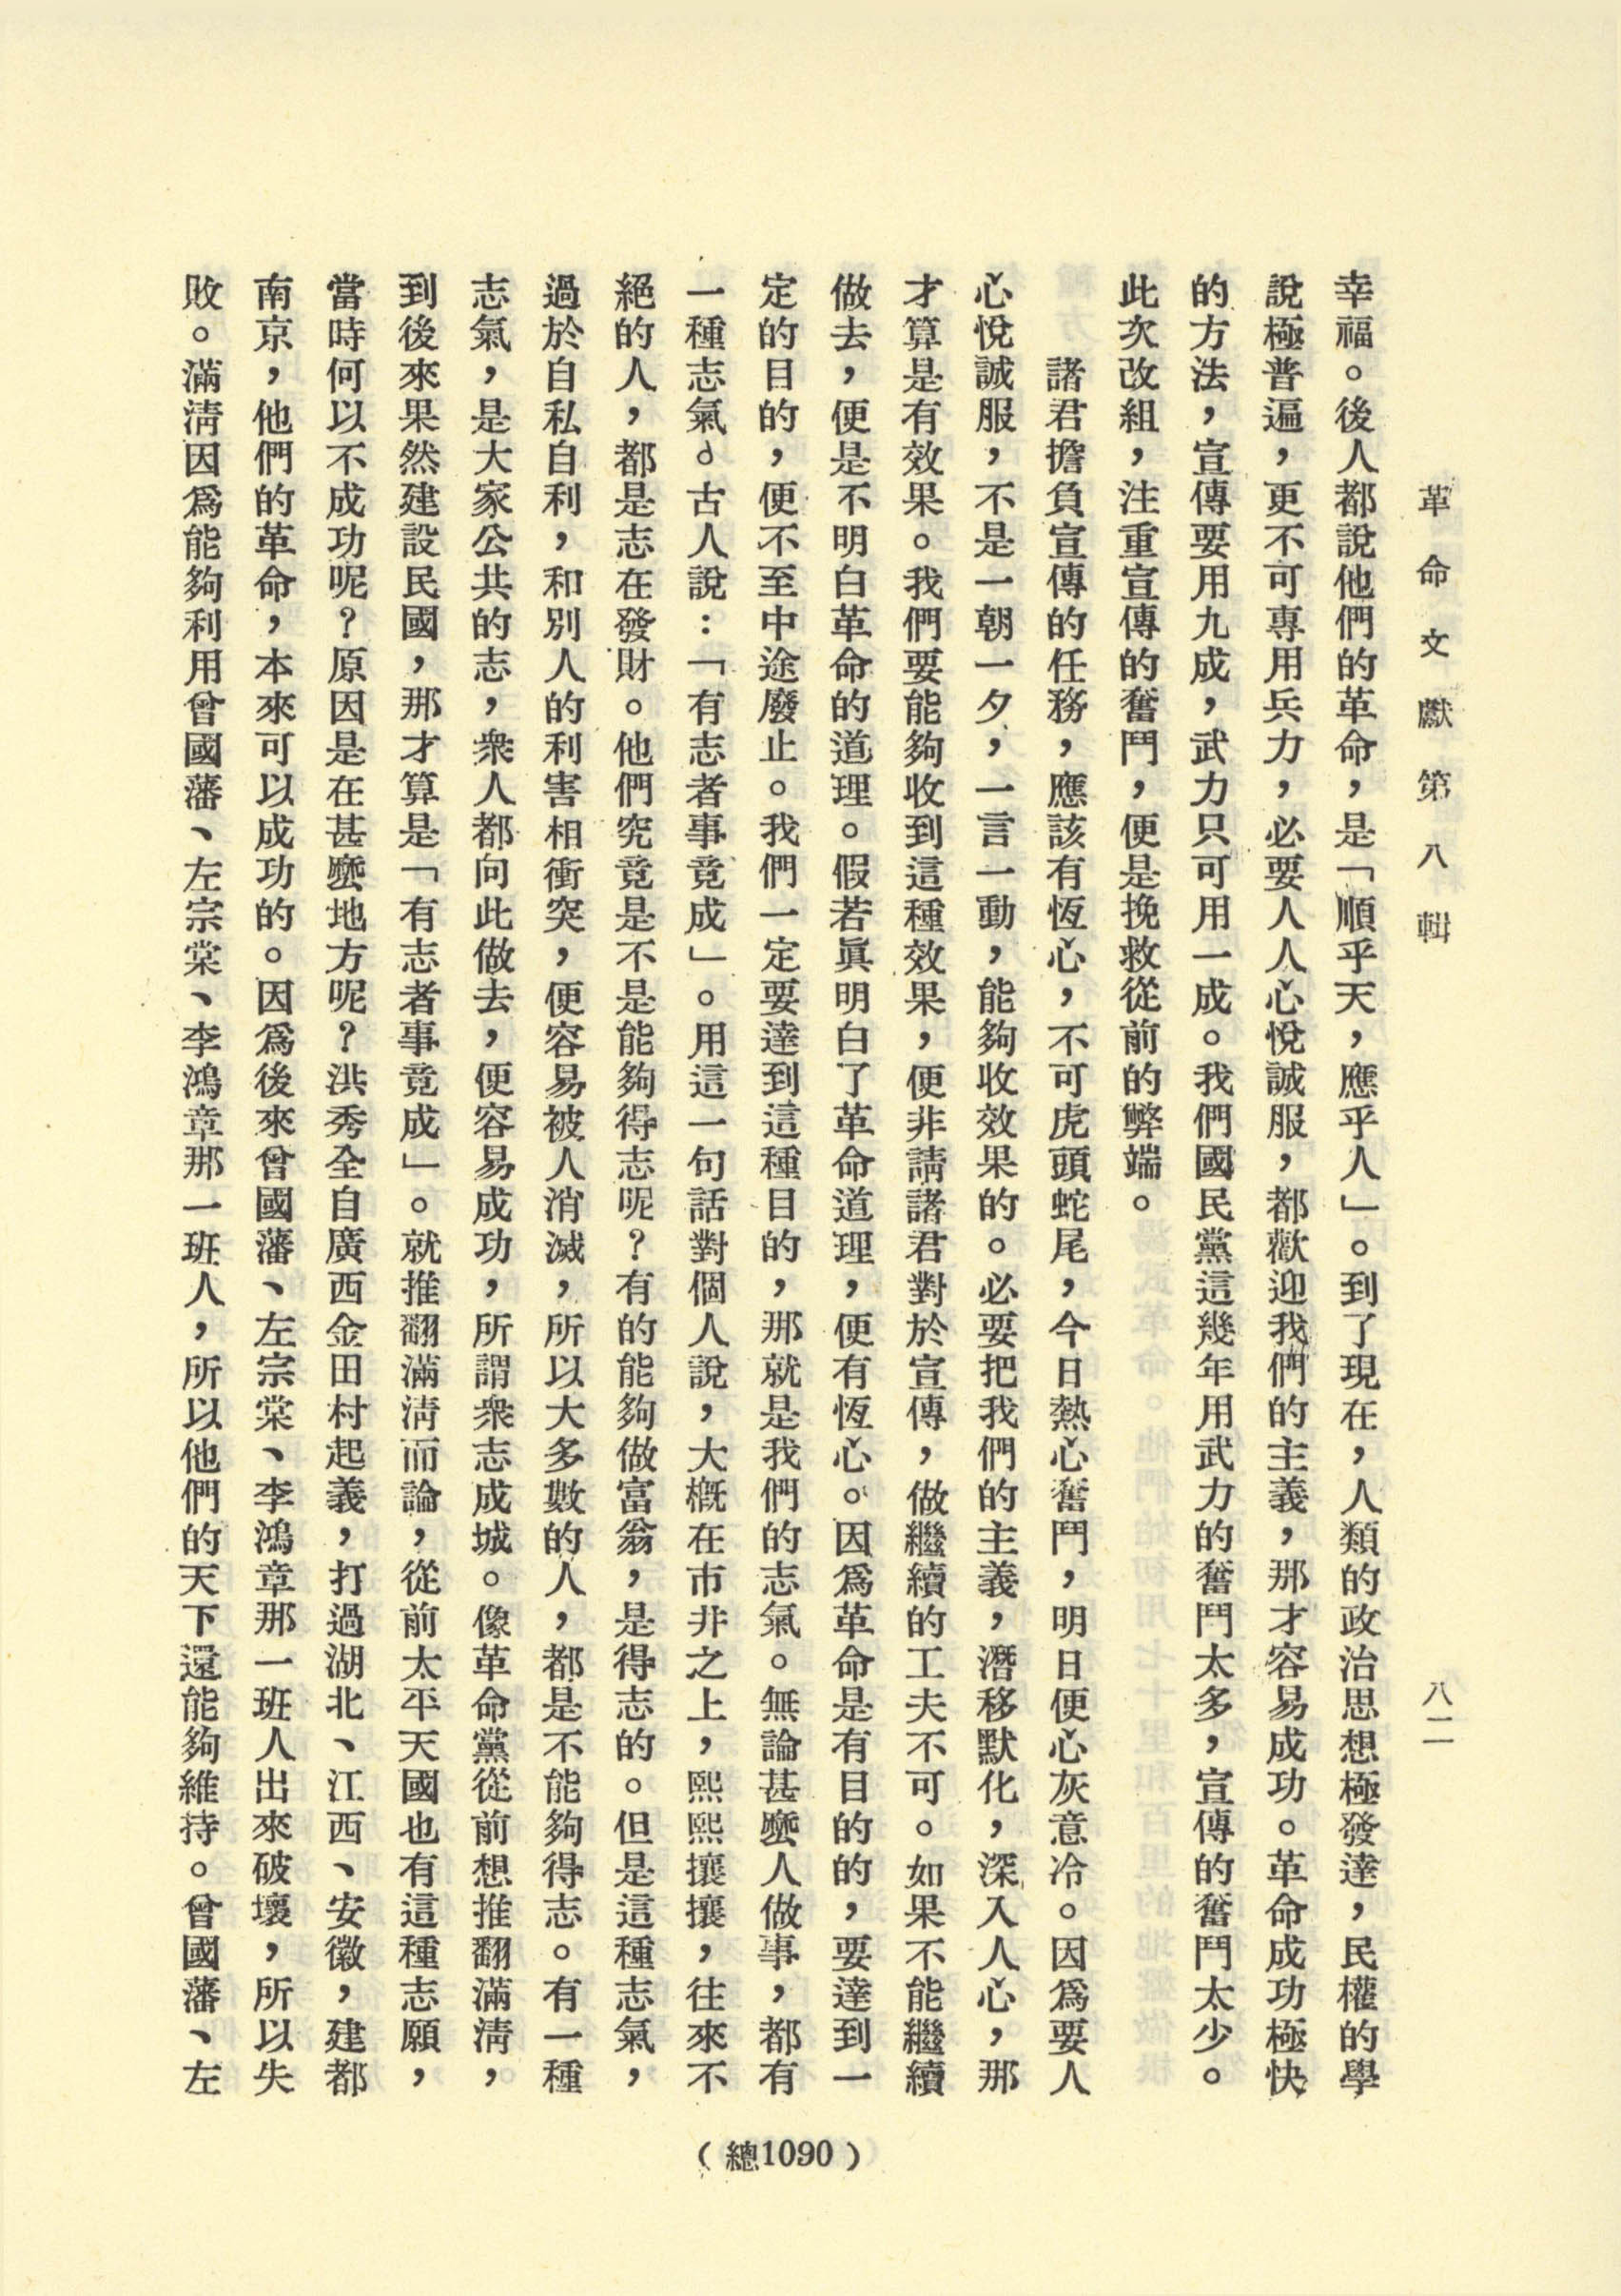 革命文獻第八輯
八二
幸福。後人都說他們的革命，是「順乎天，應乎人」。到了現在，人類的政治思想極發達，民權的學
說極普遍，更不可專用兵力，必要人人心悅誠服，都歡迎我們的主義，那才容易成功。革命成功極快
的方法，宣傳要用九成，武力只可用一成。我們國民黨這幾年用武力的奮鬥太多，宣傳的奮鬥太少。
此次改組，注重宣傳的奮鬥，便是挽救從前的弊端。
諸君擔負宣傳的任務，應該有恆心，不可虎頭蛇尾，今日熱心奮鬥，明日便心灰意冷。因爲要人
心悅誠服，不是一朝一夕，一言一動，能夠收效果的。必要把我們的主義，潛移默化，深入人心，那
才算是有效果。我們要能夠收到這種效果，便非請諸君對於宣傳，做繼續的工夫不可。如果不能繼續
做去，便是不明白革命的道理。假若眞明白了革命道理，便有恆心。因爲革命是有目的的，要達到一
定的目的，便不至中途廢止。我們一定要達到這種目的，那就是我們的志氣。無論甚麼人做事，都有
一種志氣。古人說：「有志者事竟成」。用這一句話對個人說，大概在市井之上，熙熙攘攘，往來不
絕的人，都是志在發財。他們究竟是不是能夠得志呢？有的能夠做富翁，是得志的。但是這種志氣，
過於自私自利，和別人的利害相衝突，便容易被人消滅，所以大多數的人，都是不能夠得志。有一種
志氣，是大家公共的志，衆人都向此做去，便容易成功，所謂衆志成城。像革命黨從前想推翻滿淸，
到後來果然建設民國，那才算是「有志者事竟成」。就推翻滿淸而論，從前太平天國也有這種志願，
當時何以不成功呢？原因是在甚麼地方呢？洪秀全自廣西金田村起義，打過湖北、江西、安徽，建都
南京，他們的革命，本來可以成功的。因爲後來曾國藩、左宗棠、李鴻章那一班人出來破壞，所以失
敗。滿淸因爲能夠利用曾國藩、左宗棠、李鴻章那一班人，所以他們的天下還能夠維持。曾國藩、左
（總1090）